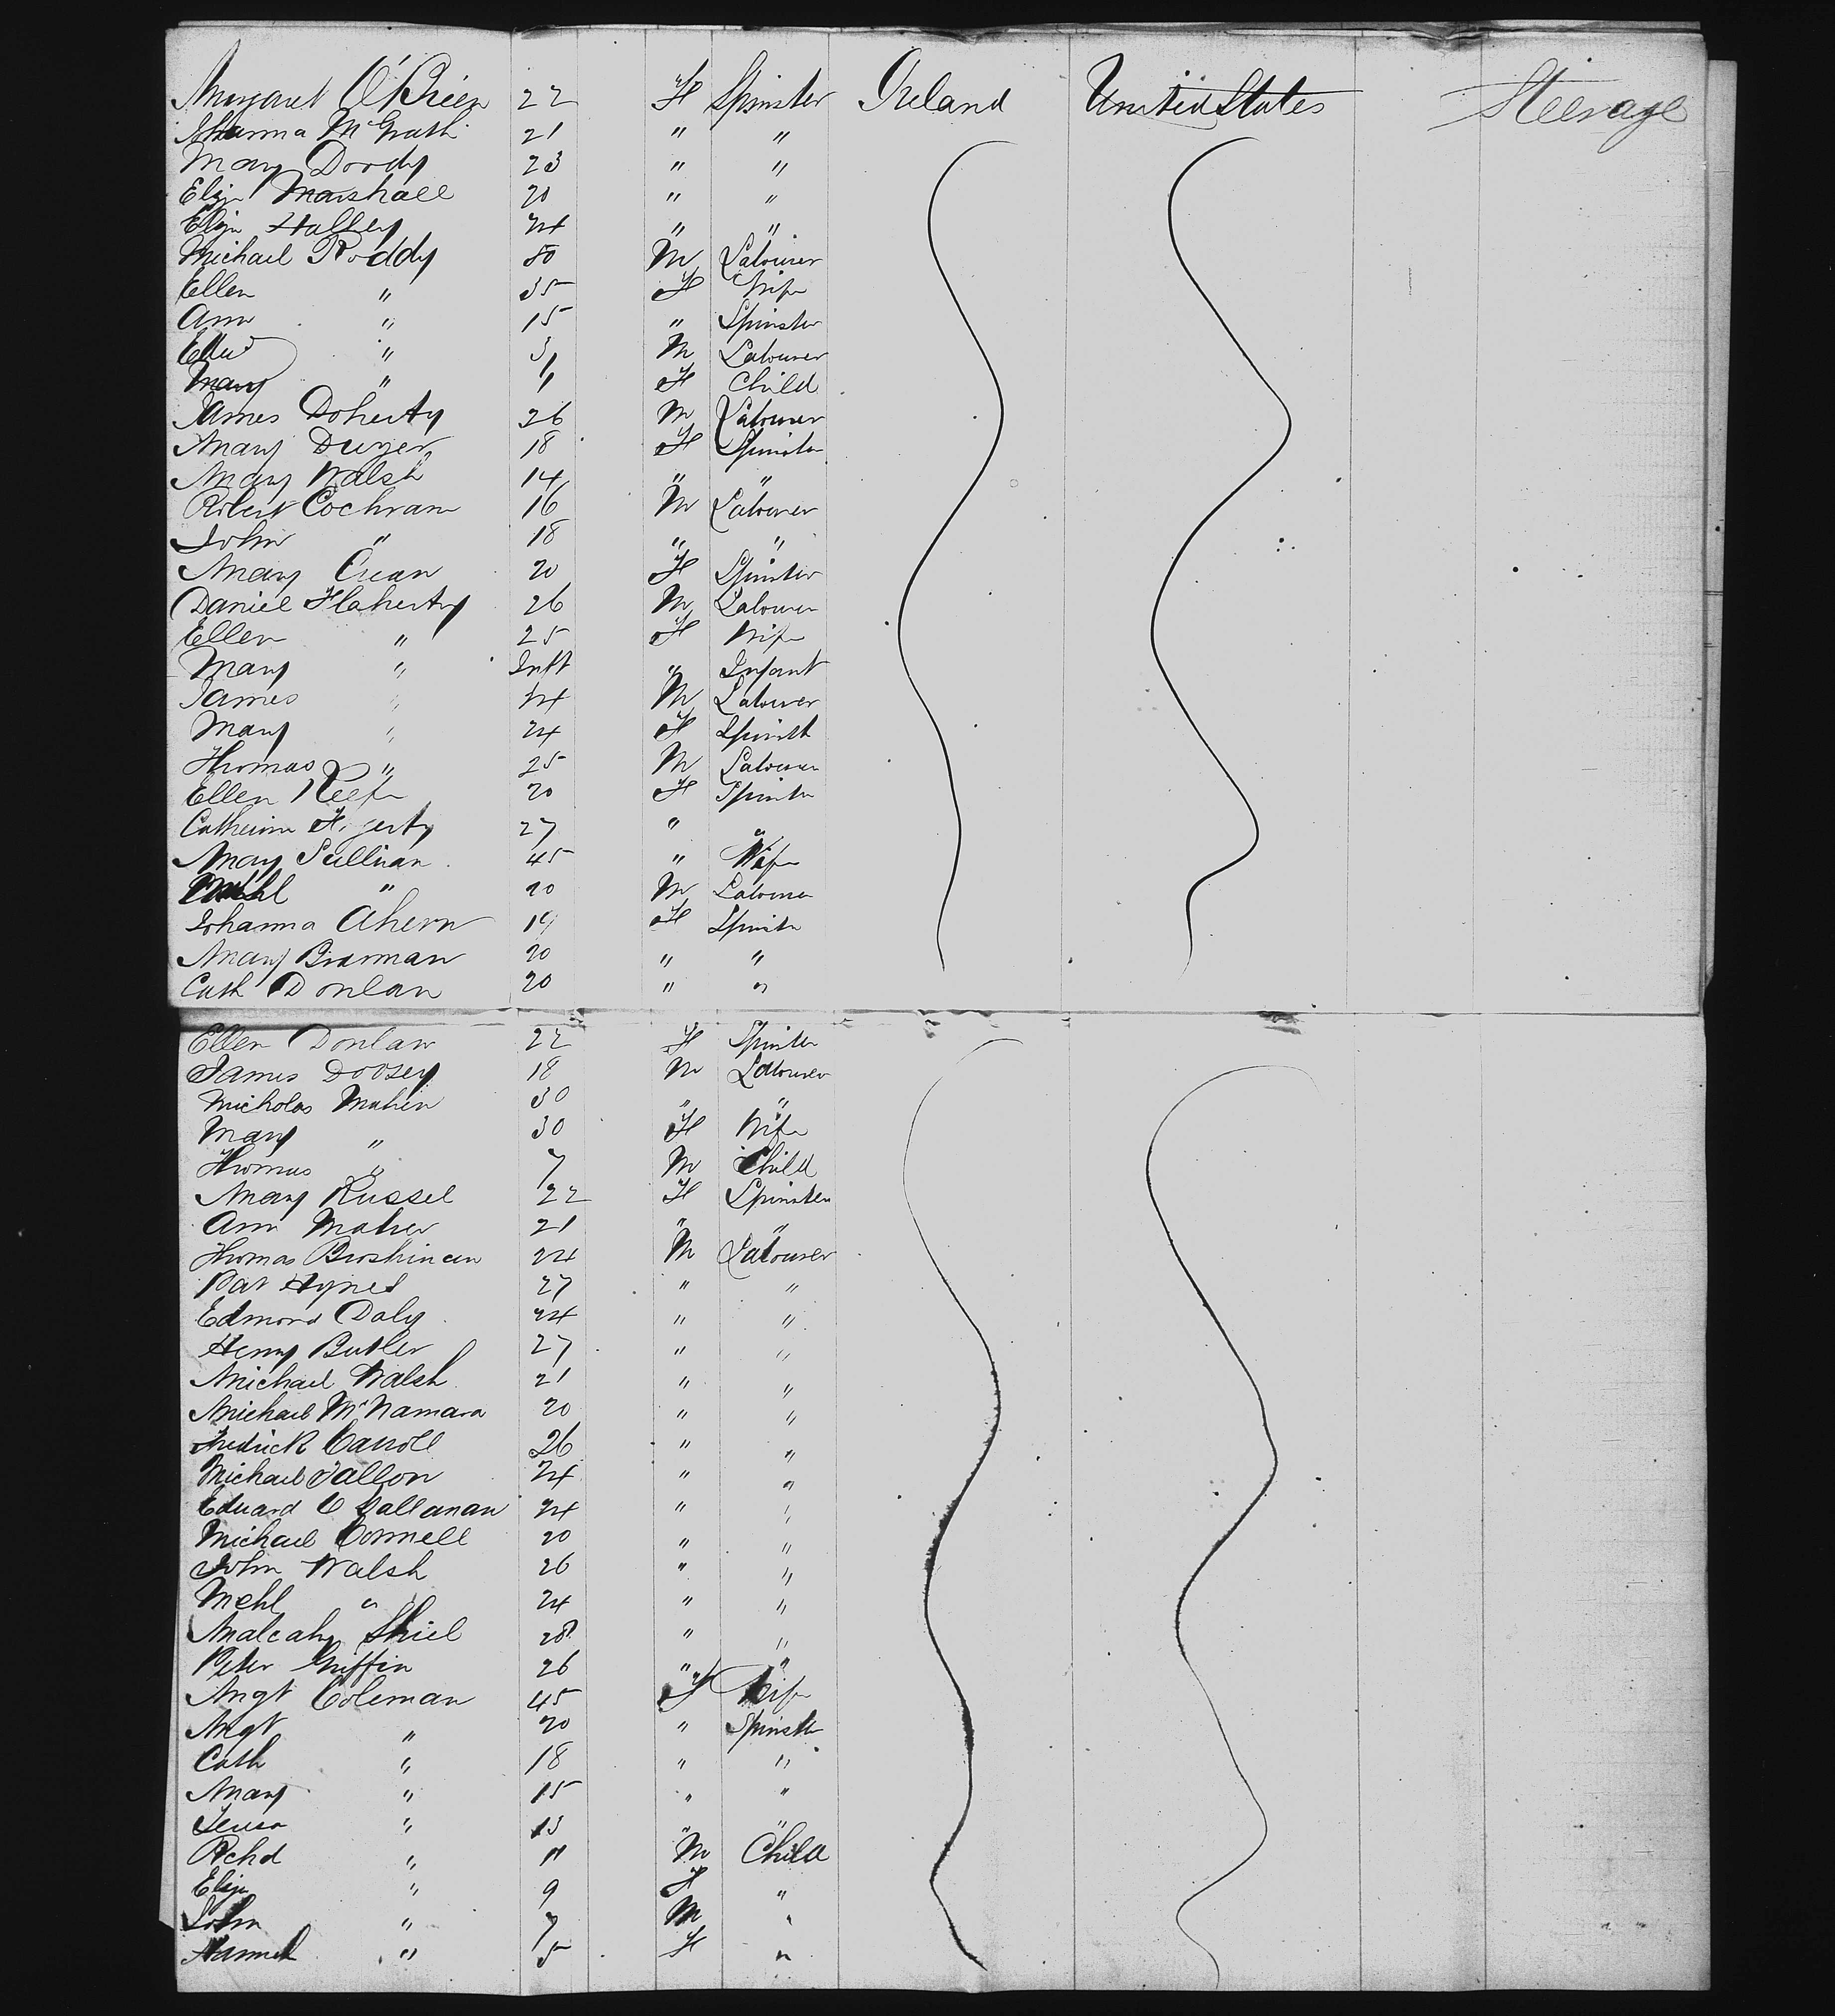 Margaret O'Brien 22 F Spinster Ireland United States Steerage
Johanna McGrath 21 " "
Mary Doody 23 " "
Eliza Marshall 20 " "
Eliza Halley 24 " "
Michael Roddy 50 M Labourer
Ellen " 35 F Wife
Ann " 15 " Spinster
" M Labourer
Mary " F Child
James Doherty 26 M Labourer
Mary Dwyer 18 F Spinster
Mary Walsh 14 " "
Robert Cochrane 16 M Labourer
John " 18 " "
Mary Crean 20 F Spinster
Daniel Flaherty 26 M Labourer
Ellen " 25 F Wife
Mary " Inft " Infant
James " 24 M Labourer
Mary " 24 F Spinstr
Thomas " 25 M Labourer
Ellen Keefe 20 F Spinster
Catherine 27 " "
Mary Sullivan 45 " Wife
Michl " 20 M Labourer
Johanna Ahern 19 F Spinster
Mary 20 " "
Cath Donlan 20 " "
Ellen Donlan 22 F Spinster
James 18 M Labourer
Nicholas Maher 30 " "
Mary " 30 F Wife
Thomas " 7 M Child
Mary Russel 22 F Spinster
Ann Maher 21 " "
Thomas Broshinan 24 M Labourer
Pat Hynes 27 " "
Edmond Daly 24 " "
Henry Butler 27 " "
Michael Walsh 21 " "
Michael McNamara 20 " "
Fredrick Carroll 26 " "
Michael Fallon 24 " "
Edward O Callanan 24 " "
Michael Connell 20 " "
John Walsh 26 " "
Mchl " 24 " "
Malcahy Shiel 28 " "
Peter Griffin 26 " "
Mgt Coleman 45 F Wife
Mgt " 20 " Spinster
Cath " 18 " "
Mary " 15 " "
" 13 " "
Richd " 11 M Child
Eliza " 9 F "
John " 7 M "
Hannah " 5 F "